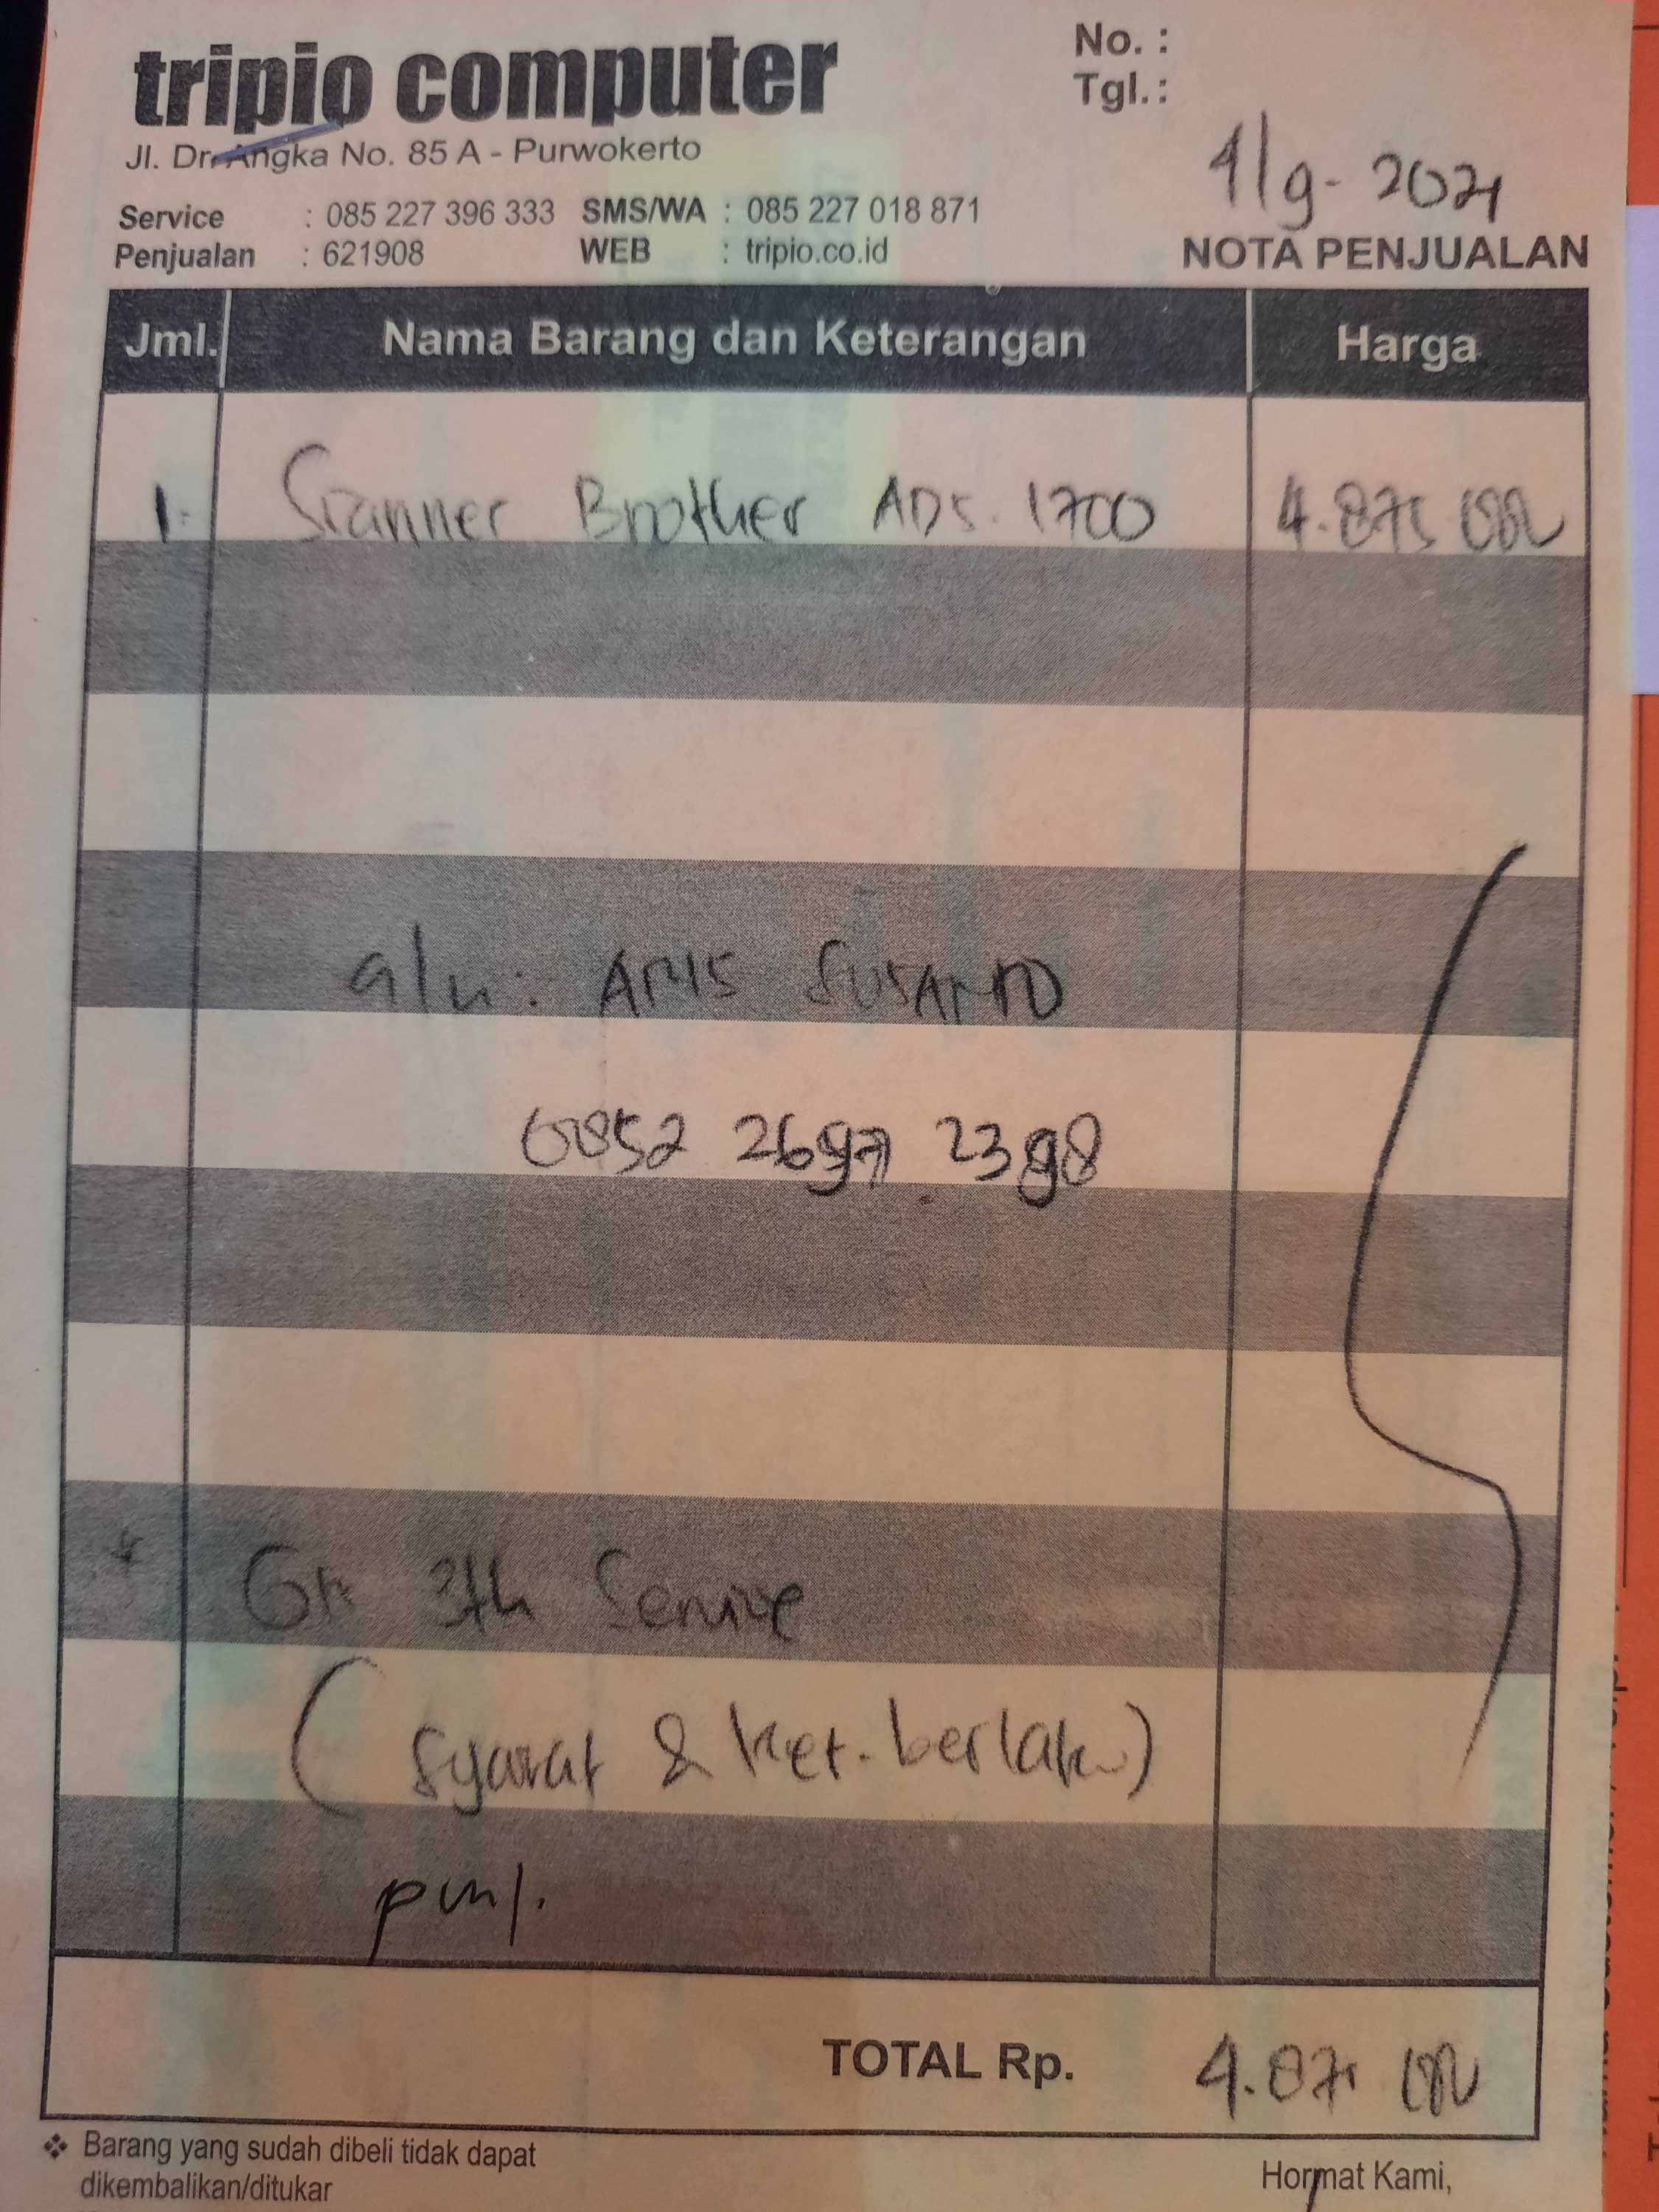 tripio computer
No. :
Tgl. :
Jl. Dr. Angka No. 85 A - Purwokerto
Service : 085 227 396 333 SMS/WA : 085 227 018 871
Penjualan : 621908 WEB : tripio.co.id
NOTA PENJUALAN
Jml. Nama Barang dan Keterangan Harga
1. Scanner Brother ADS. 1700 4.875.000
a/n : ARIS SUSANTO
0852 2697 2398
3th Service
(Syarat & ket. berlaku)
TOTAL Rp. 4.875.000
❖ Barang yang sudah dibeli tidak dapat
dikembalikan/ditukar
Hormat Kami,